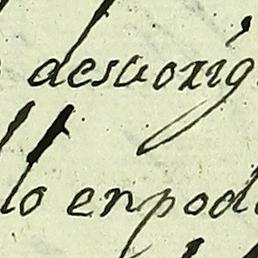 desuorig
lo enpod